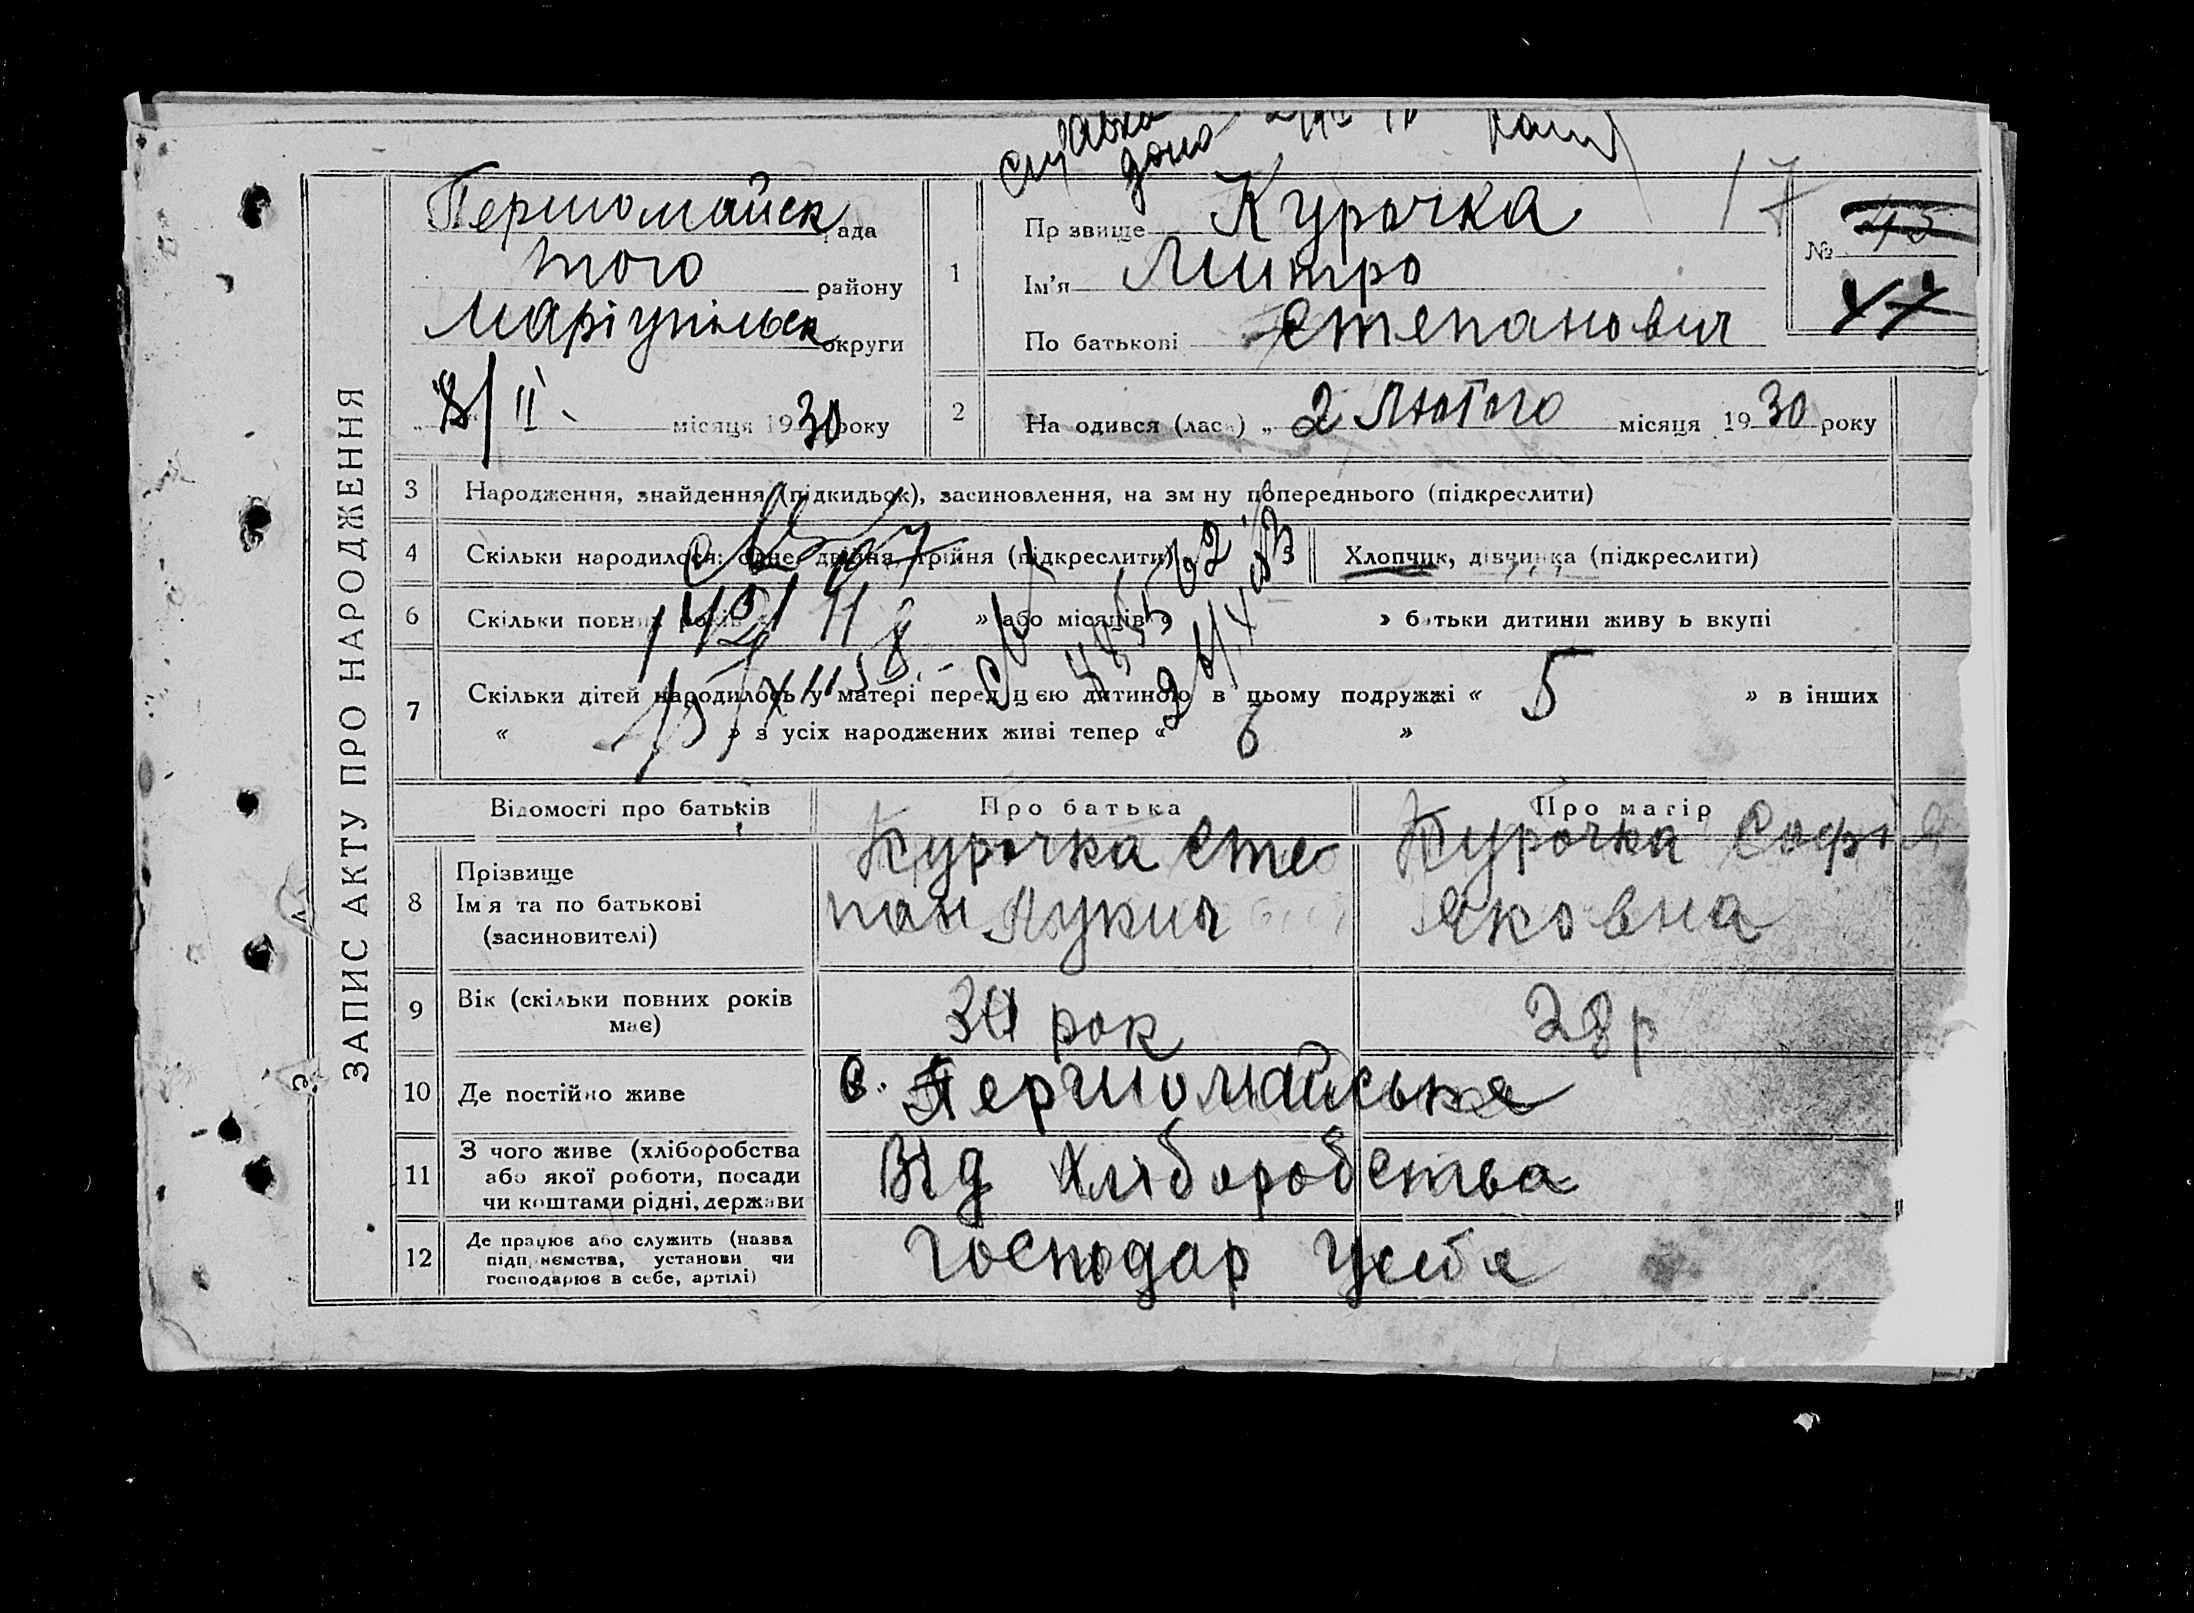 ЗАПИС АКТУ ПРО НАРОДЖЕННЯ
справка дана
Першомайск рада
того району
Маріупільск округи
8/II місяця 1930 року
1
Пр звище Курочка
Ім'я Митро
По батькові Степанович
17
№ 45
47
2 На одився (лась) „ 2 Лютого місяця 1930 року
3 Народження, знайдення (підкидьок), засиновлення, на зм ну попереднього (підкреслити)
4 Скільки народилося: одне, двійня, трійня (підкреслити) Хлопчик, дівчинка (підкреслити)
6 Скільки повних років » або місяців » » батьки дитини живу ь вкупі
7 Скільки дітей народилось у матері перед цією дитиною в цьому подружжі « 5 » в інших
« » з усіх народжених живі тепер « 6 »
Відомості про батьків Про батька Про матір
8 Прізвище
Ім'я та по батькові
(засиновителі)
Курочка Сте
пан Лукич
Курочка Софія
Яковна
9 Вік (скільки повних років
має)
рок 28 р
10 Де постійно живе с. Першомайське
11 З чого живе (хліборобства
або якої роботи, посади
чи коштами рідні, держави
Від хліборобства
12 Де працює або служить (назва
підп, ємства, установи чи
господарює в себе, артілі)
господар у себе